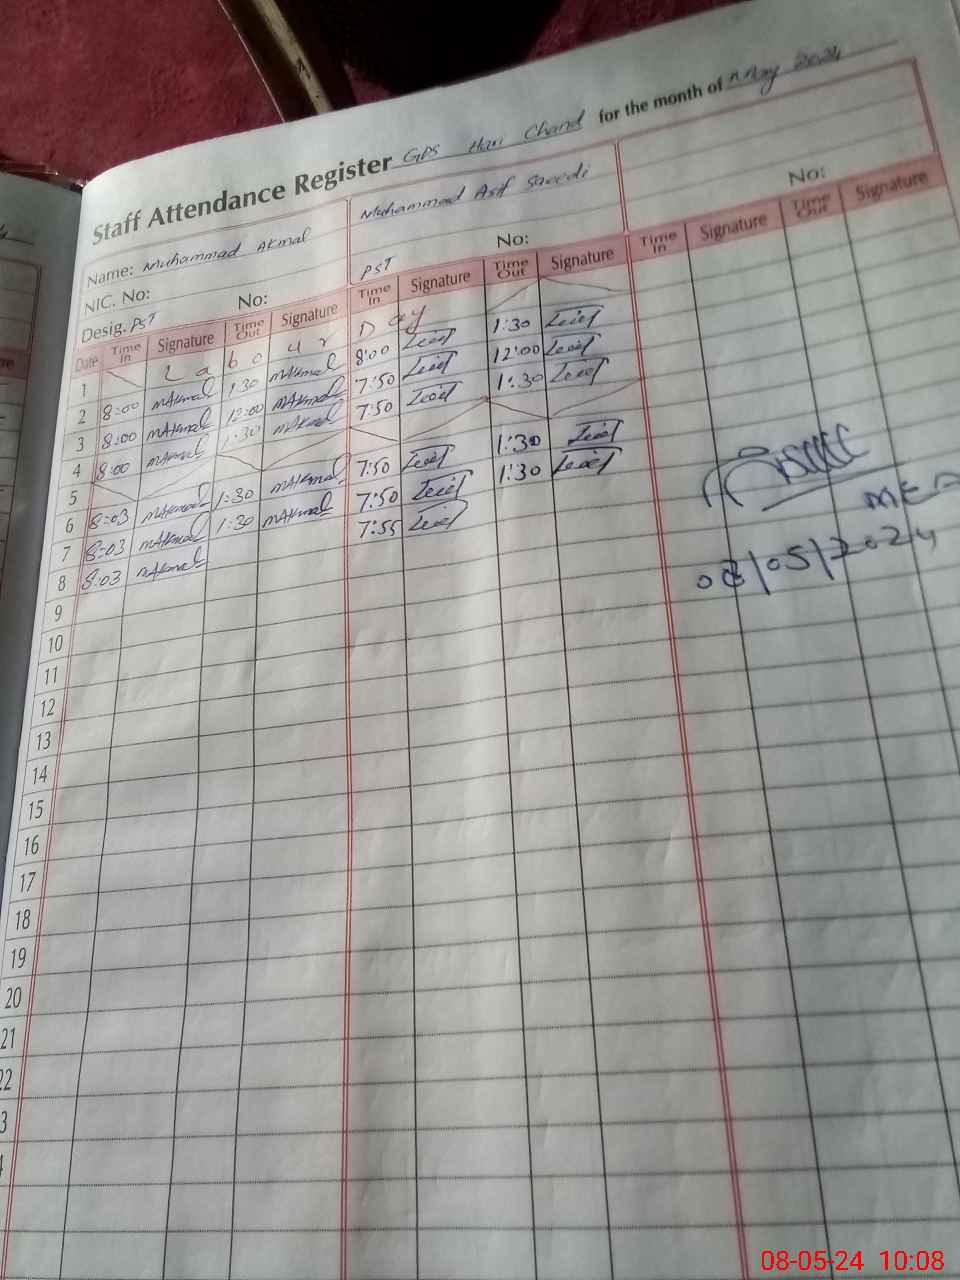 Staff Attendance Register GPS Hari Chand for the month of May 2024
Name: Muhammad Akmal Muhammad Asif Saeedi
NIC. No:
Desig. PST No: PST No: No:
Date Time In Signature Time Out Signature Time In Signature Time Out Signature Time In Signature Time Out Signature
1 Labour Day
2 8:00 MAkmal 1:30 MAkmal 8:00 1:30
3 8:00 MAkmal 12:00 MAkmal 7:50 12:00
4 8:00 MAkmal 1:30 MAkmal 7:50 1:30
5
6 8:03 MAkmal 1:30 MAkmal 7:50 1:30
7 8:03 MAkmal 1:30 MAkmal 7:50 1:30
8 8:03 MAkmal 7:55
MEA
08/05/2024
9
10
11
12
13
14
15
16
17
18
19
20
21
22
3
08-05-24 10:08